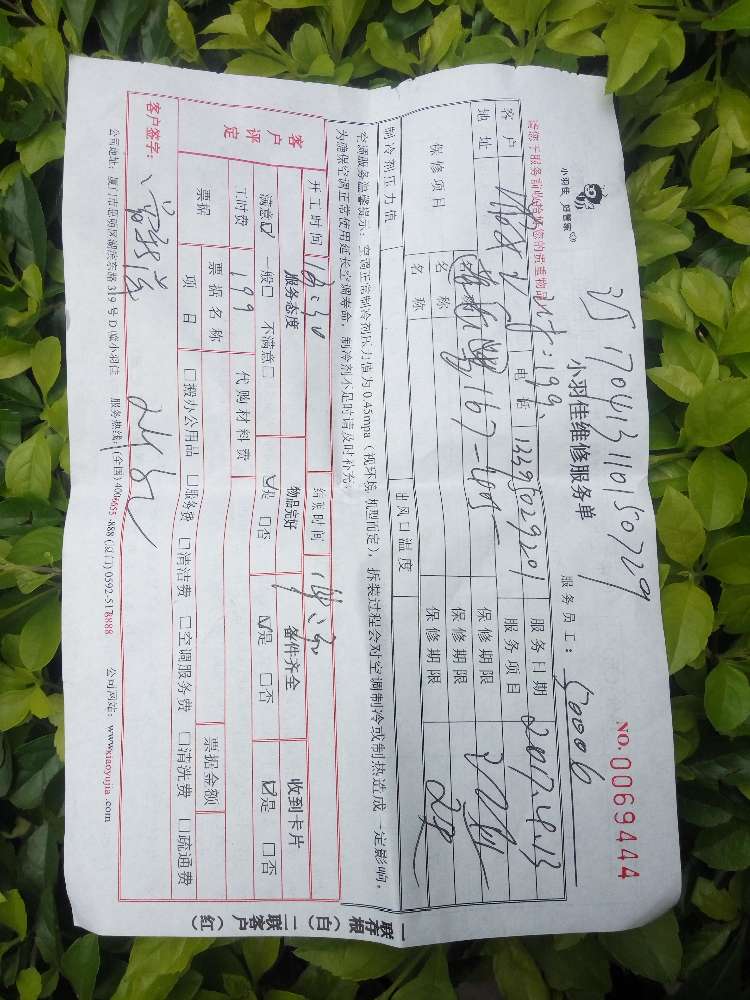 沂170413110150729
小羽佳 好管家
小羽佳维修服务单
服务员工：50006
NO. 0069444
请您于服务前收拾好您的贵重物品
客户
电话 13395029201
服务日期 2017.4.13
地址
167-605
服务项目
保修项目
名称
保修期限
名称
保修期限
制冷剂压力值
出风口温度
空调服务温馨提示：空调正常制冷剂压力值为0.45mpa（视环境机型而定），拆装过程会对空调制冷或制热造成一定影响。
为确保空调正常使用延长空调寿命，制冷剂不足时请及时补充。
开工时间
结束时间
客户评定
服务态度
物品完好
备件齐全
收到卡片
满意☑ 一般□ 不满意□
☑是 □否
☑是 □否
☑是 □否
工时费 199
代购材料费
票据
票据名称
票据金额
项目
□搬办公用品 □服务费 □清洁费 □空调服务费 □清洗费 □疏通费
客户签字：
公司地址：厦门市思明区湖滨东路319号D座小羽佳 服务热线：(全国) 4006655-888 (厦门) 0592-5178888 公司网站：www.xiaoyujia.com
一联存根（白）二联客户（红）